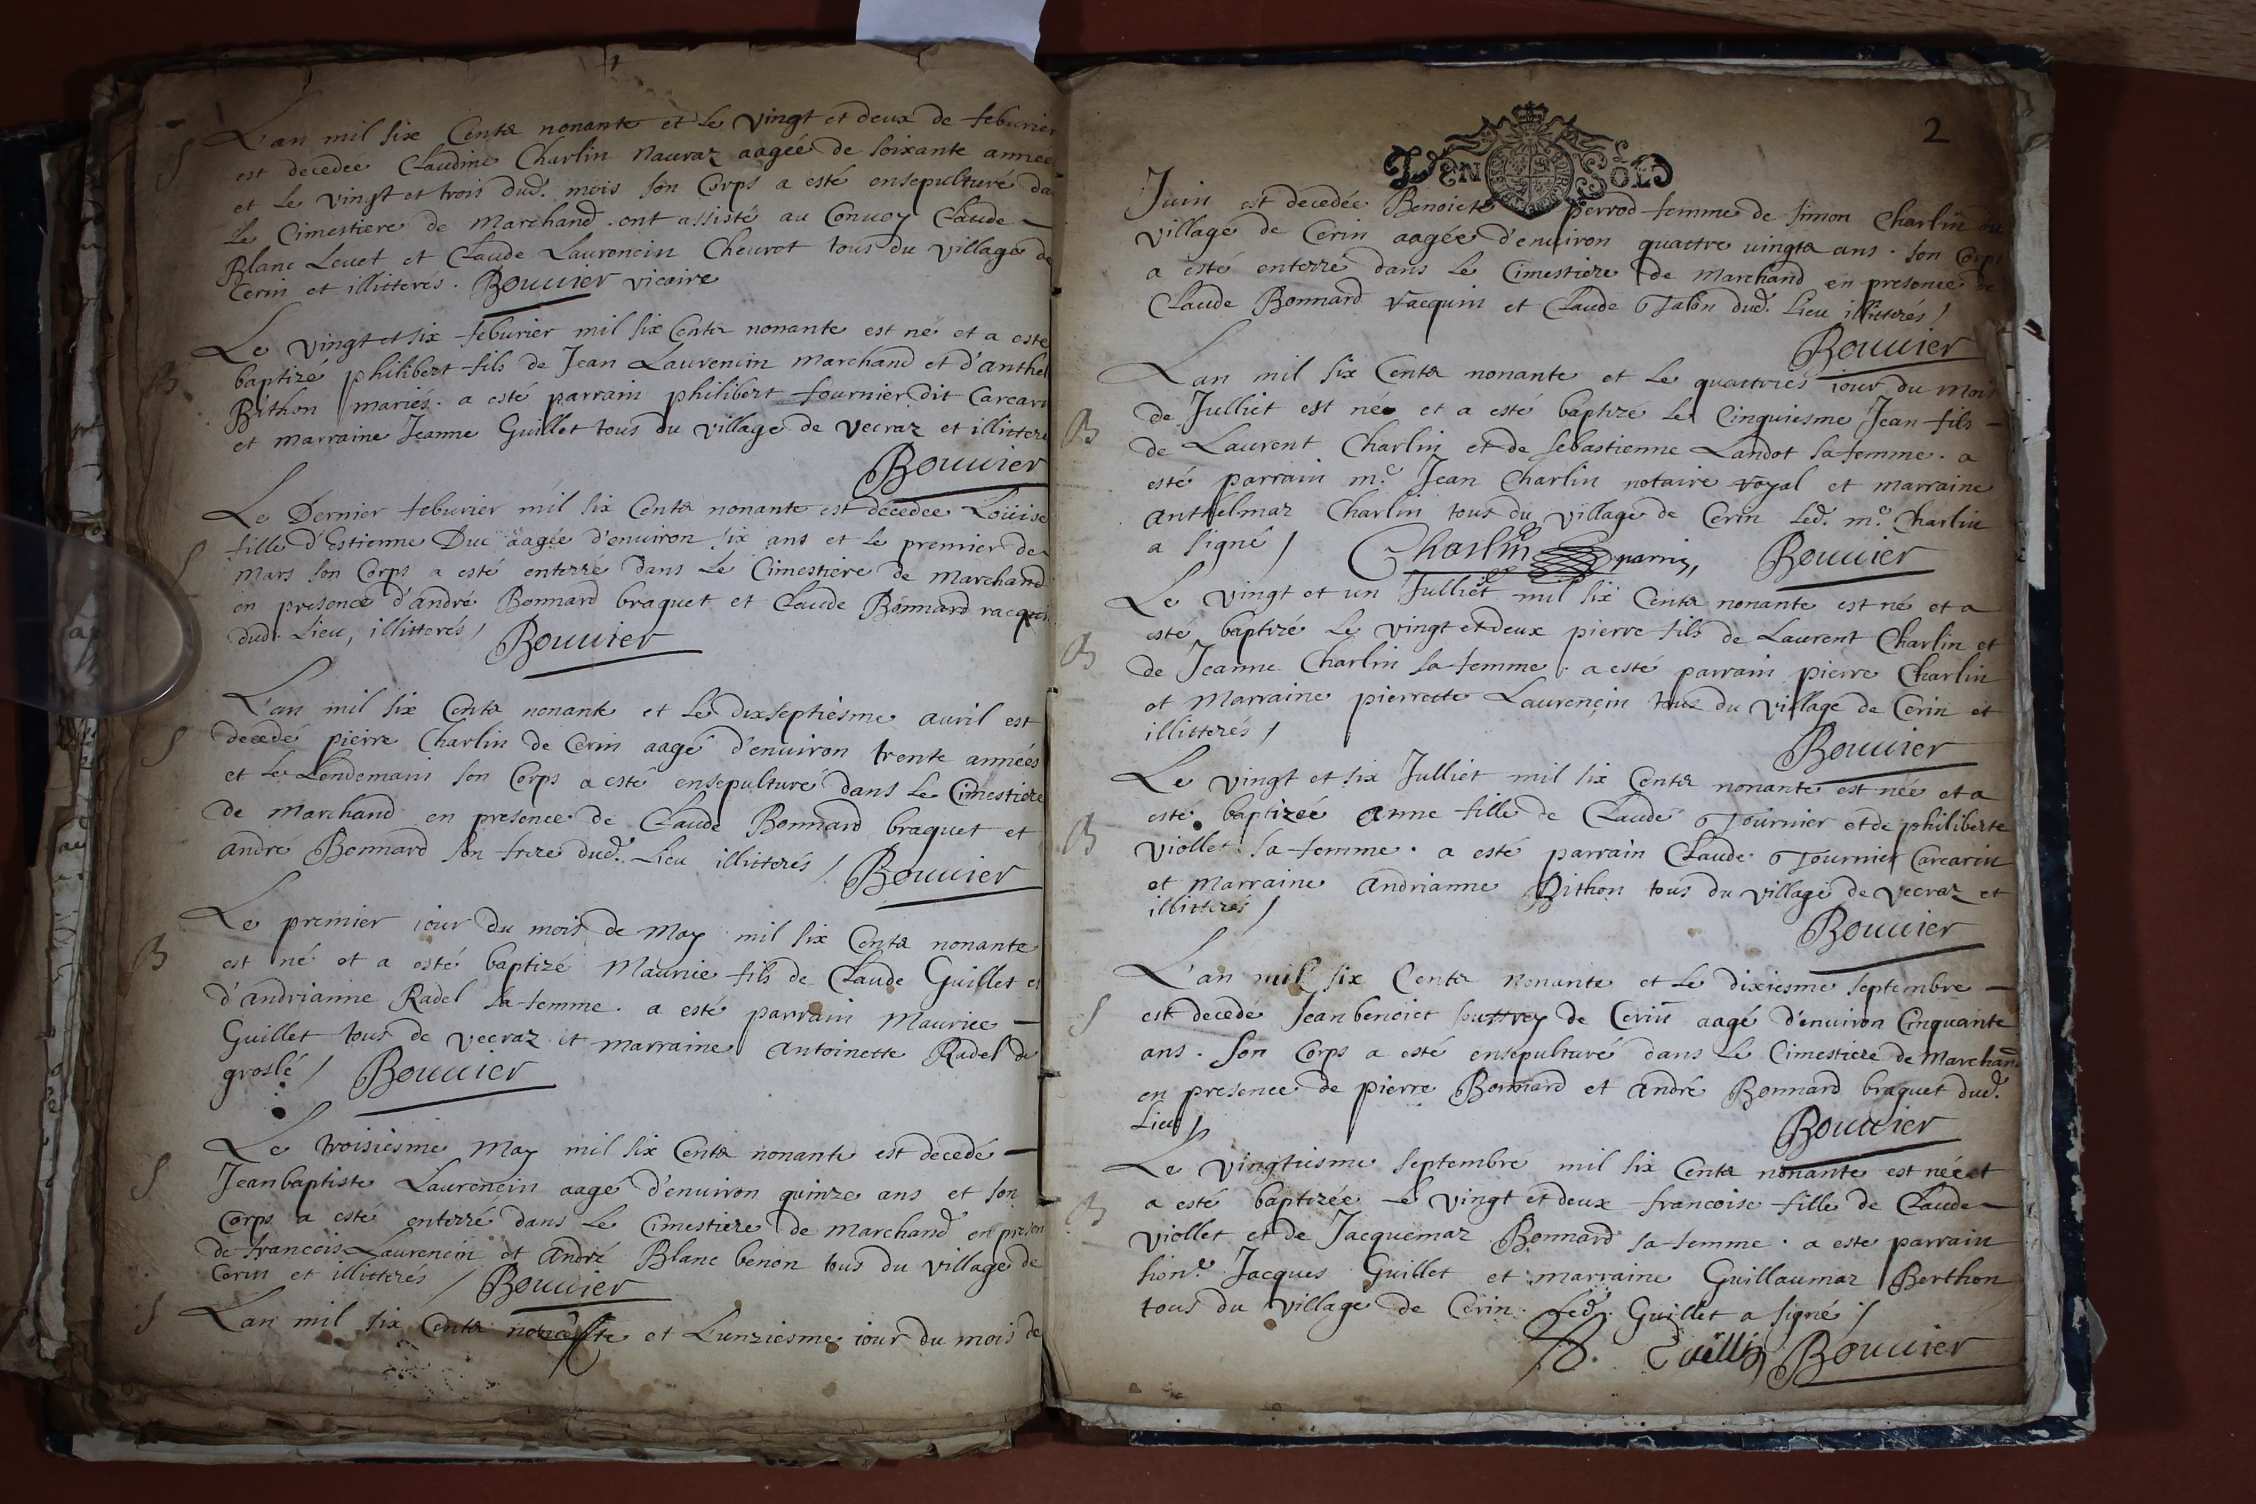 S L'an mil six Cents nonante et le vingt et deux de feburier
est decedée Claudine Charlin Nauraz aagée de soixante année
et le vingt et trois dud. mois son Corps a esté ensepulturé da
le Cimestiere de Marchand. ont assisté au Conuoy Claude
Blanc Leuet et Claude Laurencin Cheurot tous du village de
Cerin et illitterés. Bouuier vicaire
B Le vingt et six feburier mil six Cents nonante est né et a esté
baptizé philibert fils de Jean Laurencin Marchand et d'anthel
Bithon mariés. a esté parrain philibert fournier dit Carcari
et marraine Jeanne Guillet tous du village de vecraz et illittere
Bouuier
S Le Dernier feburier mil six Cents nonante est decedée Loüise
fille d'Estienne Duc aagée d'enuiron six ans et le premier de
Mars son Corps a esté enterré dans le Cimestiere de Marchand
en presence d'andré Bonnard braquet et Claude Bonnard racqui
dud. Lieu, illitterés / Bouuier
S L'an mil six Cents nonante et le dixseptiesme auril est
decedé pierre Charlin de Cerin aagé d'enuiron trente années
et le Lendemain son Corps a esté ensepulturé dans le Cimestiere
de Marchand en presence de Claude Bonnard braquet et
andré Bonnard son frere dud. Lieu illitterés / Bouuier
B Le premier iour du mois de May mil six Cents nonante
est né et a esté baptizé Maurice fils de Claude Guillet et
d'andrianne Radel sa femme. a esté parrain Maurice
Guillet tous de vecraz et marraine antoinette Radel de
groslé / Bouuier
S Le troisiesme May mil six Cents nonante est decedé
Jeanbaptiste Laurencin aagé d'enuiron quinze ans et son
Corps a esté enterré dans le Cimestiere de Marchand en presen
de francois Laurencin et andré Blanc benon tous du village de
Cerin et illitterés / Bouuier
S L'an mil six Cents nonante et L'unziesme iour du mois de
2
DEN SOLS
Juin est decedée Benoicte perrod femme de simon Charlin du
village de Cerin aagée d'enuiron quattre uingts ans. son Corps
a esté enterré dans le Cimestiere de Marchand en presence de
Claude Bonnard racquin et Claude Talon dud. Lieu illitterés /
Bouuier
B L'an mil six Cents nonante et le quattries iour du mois
de Julliet est né et a esté baptizé le Cinquiesme Jean fils
de Laurent Charlin et de sebastienne Landot sa femme. a
esté parrain m.e Jean Charlin notaire royal et marraine
anthelmaz Charlin tous du village de Cerin led. m.e Charlin
a signé / Charlin parrin, Bouuier
B Le vingt et un Julliet mil six Cents nonante est né et a
esté baptizé le vingt et deux pierre fils de Laurent Charlin et
de Jeanne Charlin sa femme. a esté parrain pierre Charlin
et Marraine pierrette Laurencin tous du village de Cerin et
illitterés / Bouuier
B Le vingt et six Julliet mil six Cents nonante est née et a
esté baptizée anne fille de Claude fournier et de philiberte
viollet sa femme. a esté parrain Claude fournier Carcarin
et Marraine andrianne Bithon tous du village de vecraz et
illitterés / Bouuier
S L'an mil six Cents nonante et le dixiesme septembre
est decedé Jeanbenoict de Cerin aagé d'enuiron Cinquante
ans. son Corps a esté ensepulturé dans le Cimestiere de Marchand
en presence de pierre Bonnard et andré Bonnard braquet dud.
Lieu / Bouuier
B Le vingtiesme septembre mil six Cents nonante est née et
a esté baptizée le vingt et deux francoise fille de Claude
viollet et de Jacquemaz Bonnard sa femme. a esté parrain
hon.e Jacques Guillet et marraine Guillaumaz Berthon
tous du village de Cerin. Led. Guillet a signé /
Bouuier